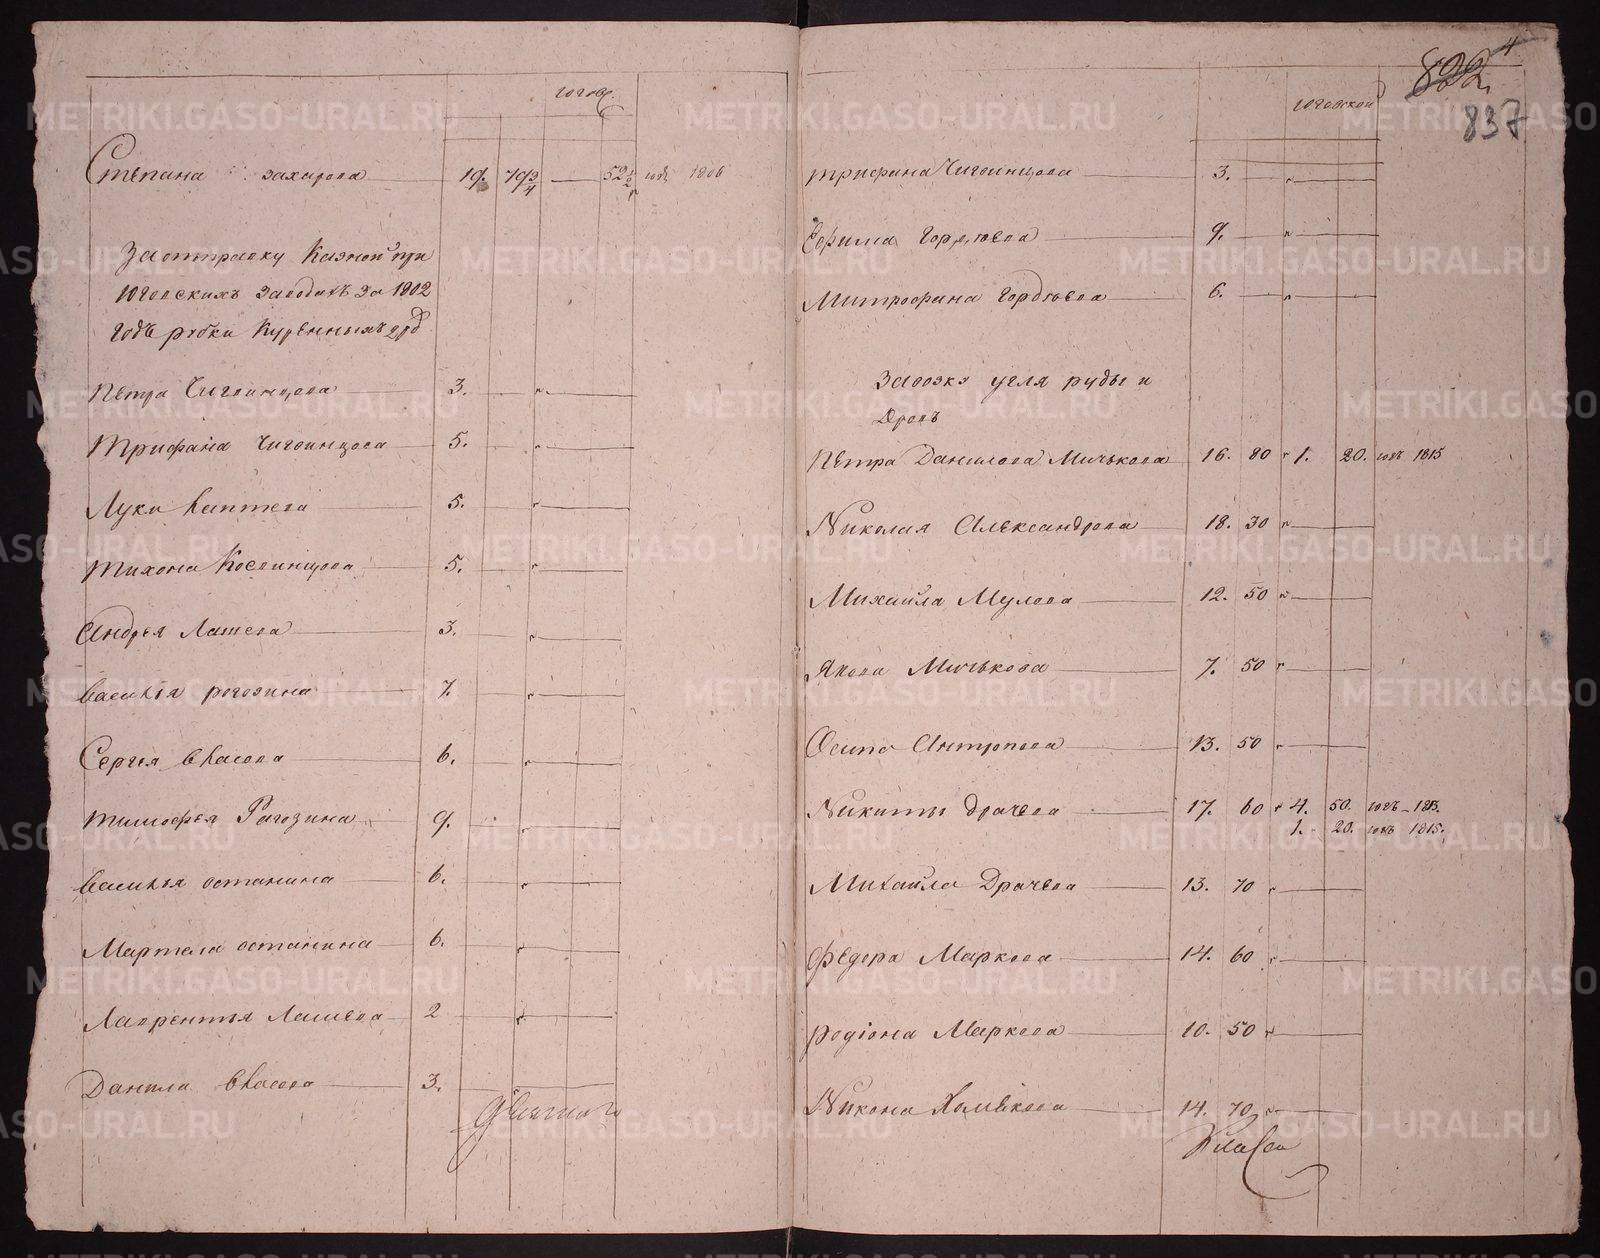 Степана захарова 19. 79 3/4 — 52 1/2 юг. 1806
За отправку Казной при
Юговскихъ заводахъ за 1802
годъ рубки Куренныхъ др
Петра Чигвинцова 3.
Трифана Чигвинцова 5.
Луки Лаптева 5.
Тихона Косвинцова 5.
Андрея Лашева 3.
Василья рогозина 7.
Сергея власова 6.
тимофея Рагозина 9.
Василья останина 6.
Мартела останина 6.
Лаврентья Лашева 2
Данила власова 3.
822 4
837
юговской
трифана Чигвинцова 3.
Ефима Гордѣева 9.
Митрофана Гордѣева 6.
Завозка угля руды и
Дровъ
Петра Данилова Мичькова 16. 80 1. 20. югъ 1815
Николая Александрова 18. 30
Михаила Мулова 12. 50
Якова Мичькова 7. 50
Осипа Антропова 13. 50
Никиты Драчева 17. 60 4. 50. югъ 1813.
1. 20. югъ 1815.
Михаила Драчева 13. 70
Федора Маркова 14. 60
родiона Маркова 10. 50
Никона Холмкова 14. 70
METRIKI.GASO-URAL.RU